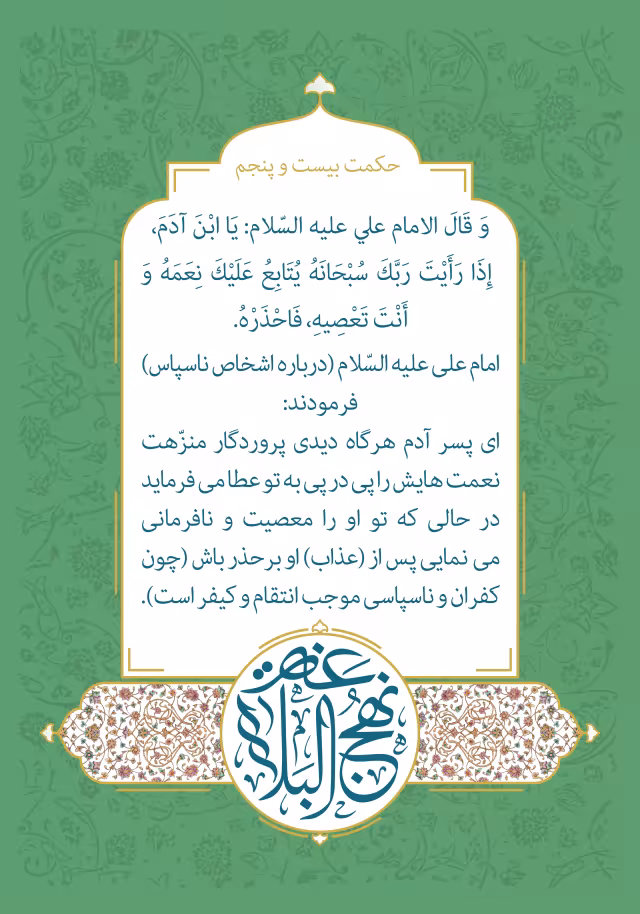 حکمت بیست و پنجم
وَ قَالَ الامام علي عليه السّلام: يَا ابْنَ آدَمَ،
إِذَا رَأَيْتَ رَبَّكَ سُبْحَانَهُ يُتَابِعُ عَلَيْكَ نِعَمَهُ وَ
أَنْتَ تَعْصِيهِ، فَاحْذَرْهُ.
امام علی علیه السّلام (درباره اشخاص ناسپاس)
فرمودند:
ای پسر آدم هرگاه دیدی پروردگار منزّهت
نعمت هایش را پی در پی به تو عطا می فرماید
در حالی که تو او را معصیت و نافرمانی
می نمایی پس از (عذاب) او برحذر باش (چون
کفران و ناسپاسی موجب انتقام و کیفر است).
نهج البلاغة